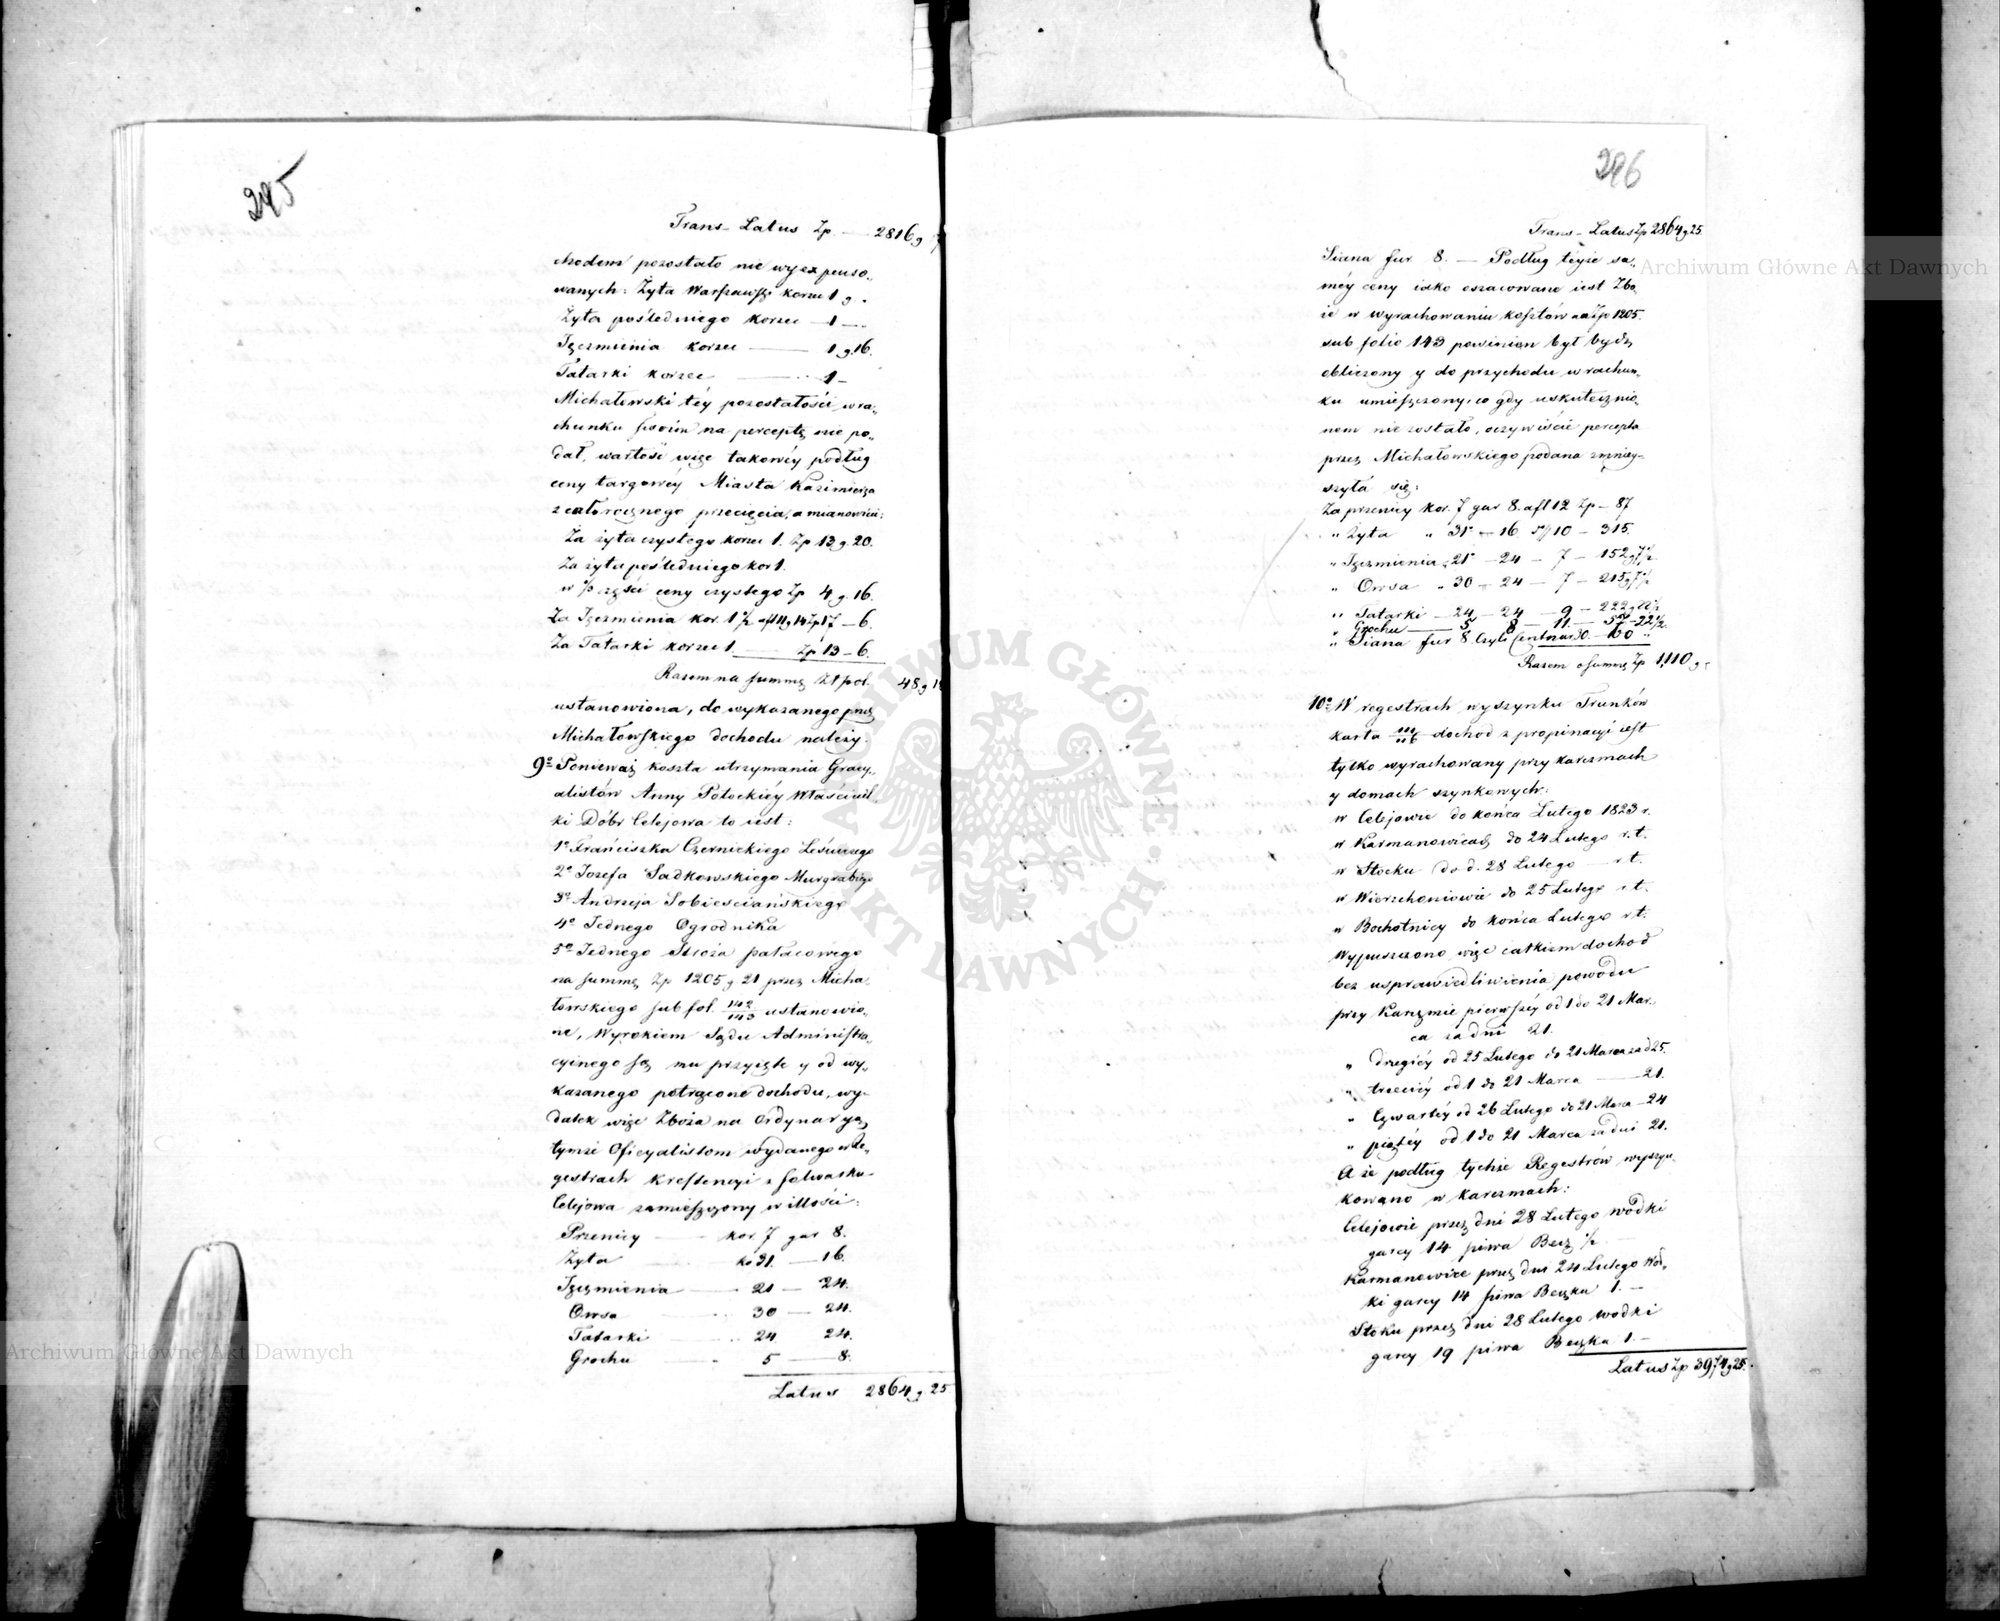 295
Trans- Latus Zp. — 2816 g
chodem pozostało nie wyexpenso„
wanych: Żyta Warszawsk: korzec 1 g.
Żyta pośledniego korzec — 1 —
Jęczmienia korzec — 1 g. 16.
Tatarki korzec — 1 —
Michałowski téy pozostałości w ra„
chunku swoim na perceptę nie po„
dał, wartość więc takowéy podług
ceny targowéy Miasta Kazimierza
z całorocznego przecięcia, a mianowicie:
Za żyta czystego korzec 1. Zp 13 g. 20.
Za żyta pośledniego kor 1.
w ⅓ części ceny czystego Zp 4 g. 16.
Za Jęczmienia kor. 1 ½ a f 11 g 14 Zp 17 — 6.
Za Tatarki korzec 1. — Zp 13 — 6.
Razem na summę Zł pol. 48 g 18
ustanowiona, do wykazanego przez
Michałowskiego dochodu należy.
9º Ponieważ koszta utrzymania Oficy„
alistów Anny Potockiéy Właściciel„
ki Dóbr Celejowa to iest:
1º Franciszka Czernickiego Leśniczego
2º Jozefa Sadkowskiego Murgrabiego
3º Andrzeja Sobiesciańskiego
4º Jednego Ogrodnika
5º Jednego Stróża pałacowego
na summę Zp 1205 g 21 przez Micha„
łowskiego sub fol. 142/143 ustanowio„
ne, Wyrokiem Sądu Administra„
cyinego są mu przyięte y od wy„
kazanego potrącone dochodu, wy„
datek więc Zboża na Ordynaryą
tymże Oficyalistom wydanego w Re„
gestrach Krestencyi z folwarku
Celejowa zamieszczony w illości:
Pszenicy — kor. 7 gar 8.
Żyta — ko 31. — 16.
Jęczmienia — 21 — 24.
Owsa — 30 — 24.
Tatarki — 24 24.
Grochu — 5 — 8.
Latus 2864 g. 25
296
Trans- Latus Zp 2864 g 25.
Siana fur 8. — Podług teyże sa„
méy ceny iako oszacowane iest Zbo„
że w wyrachowaniu kosztów na Zp 1205.
sub folio 143 powinien był bydź
obliczony y do przychodu w rachun„
ku umieszczony, co gdy uskutecznio„
nem nie zostało, oczywiście percepta
przez Michałowskiego podana zmniey„
szyła się:
Za przenicy kor. 7 gar 8. a fl 12 Zp — 87
„ Żyta „ 31 — 16 10 — 315.
„ Jęczmienia „ 21 — 24 — 7 — 152 g 7½
„ Owsa „ 30 — 24 — 7 — 215 g 7½
„ Tatarki — 24 — 24 — 9 — 222 g 22½
„ Grochu — 5 8 — 11 — 57 — 22½
„ Siana fur 8. czyli Centnar 30. — 60 „
Razem o summę Zp 1,110 g
10º W regestrach wyszynku Trunków
karta 111/116 dochód z propinacyi iest
tylko wyrachowany przy karczmach
y domach szynkowych:
w Celejowie do końca Lutego 1823 r.
w Karmanowicach do 24 Lutego r. t.
w Stocku do d. 28 Lutego — r. t.
w Wierzchoniowie do 25 Lutego r. t.
w Bochotnicy do końca Lutego r. t.
Wypuszczono więc całkiem dochód
bez usprawiedliwienia powodu
przy Karczmie pierwszéy od 1 do 21 Mar„
ca za dni 21.
„ drugiéy od 25 Lutego do 21 Marca za d 25.
„ trzeciéy od 1 do 21 Marca — 21.
„ Czwartéy od 26 Lutego do 21 Marca — 24
„ piątéy od 1 do 21 Marca za dni 21.
A że podług tychże Regestrów wyszyn„
kowano w karczmach:
Celejowie przez dni 28 Lutego wodki
garcy 14 piwa Becz ½
Karmanowice przez dni 24 Lutego wód„
ki garcy 14 piwa Beczka 1. —
Stoku przez dni 28 Lutego wodki
garcy 19 piwa Beczka 1. —
Latus Zp 3974 g 25.
Archiwum Główne Akt Dawnych
Archiwum Główne Akt Dawnych
ARCHIWUM GŁÓWNE AKT DAWNYCH